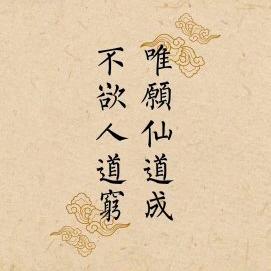 唯願仙道成
不欲人道窮